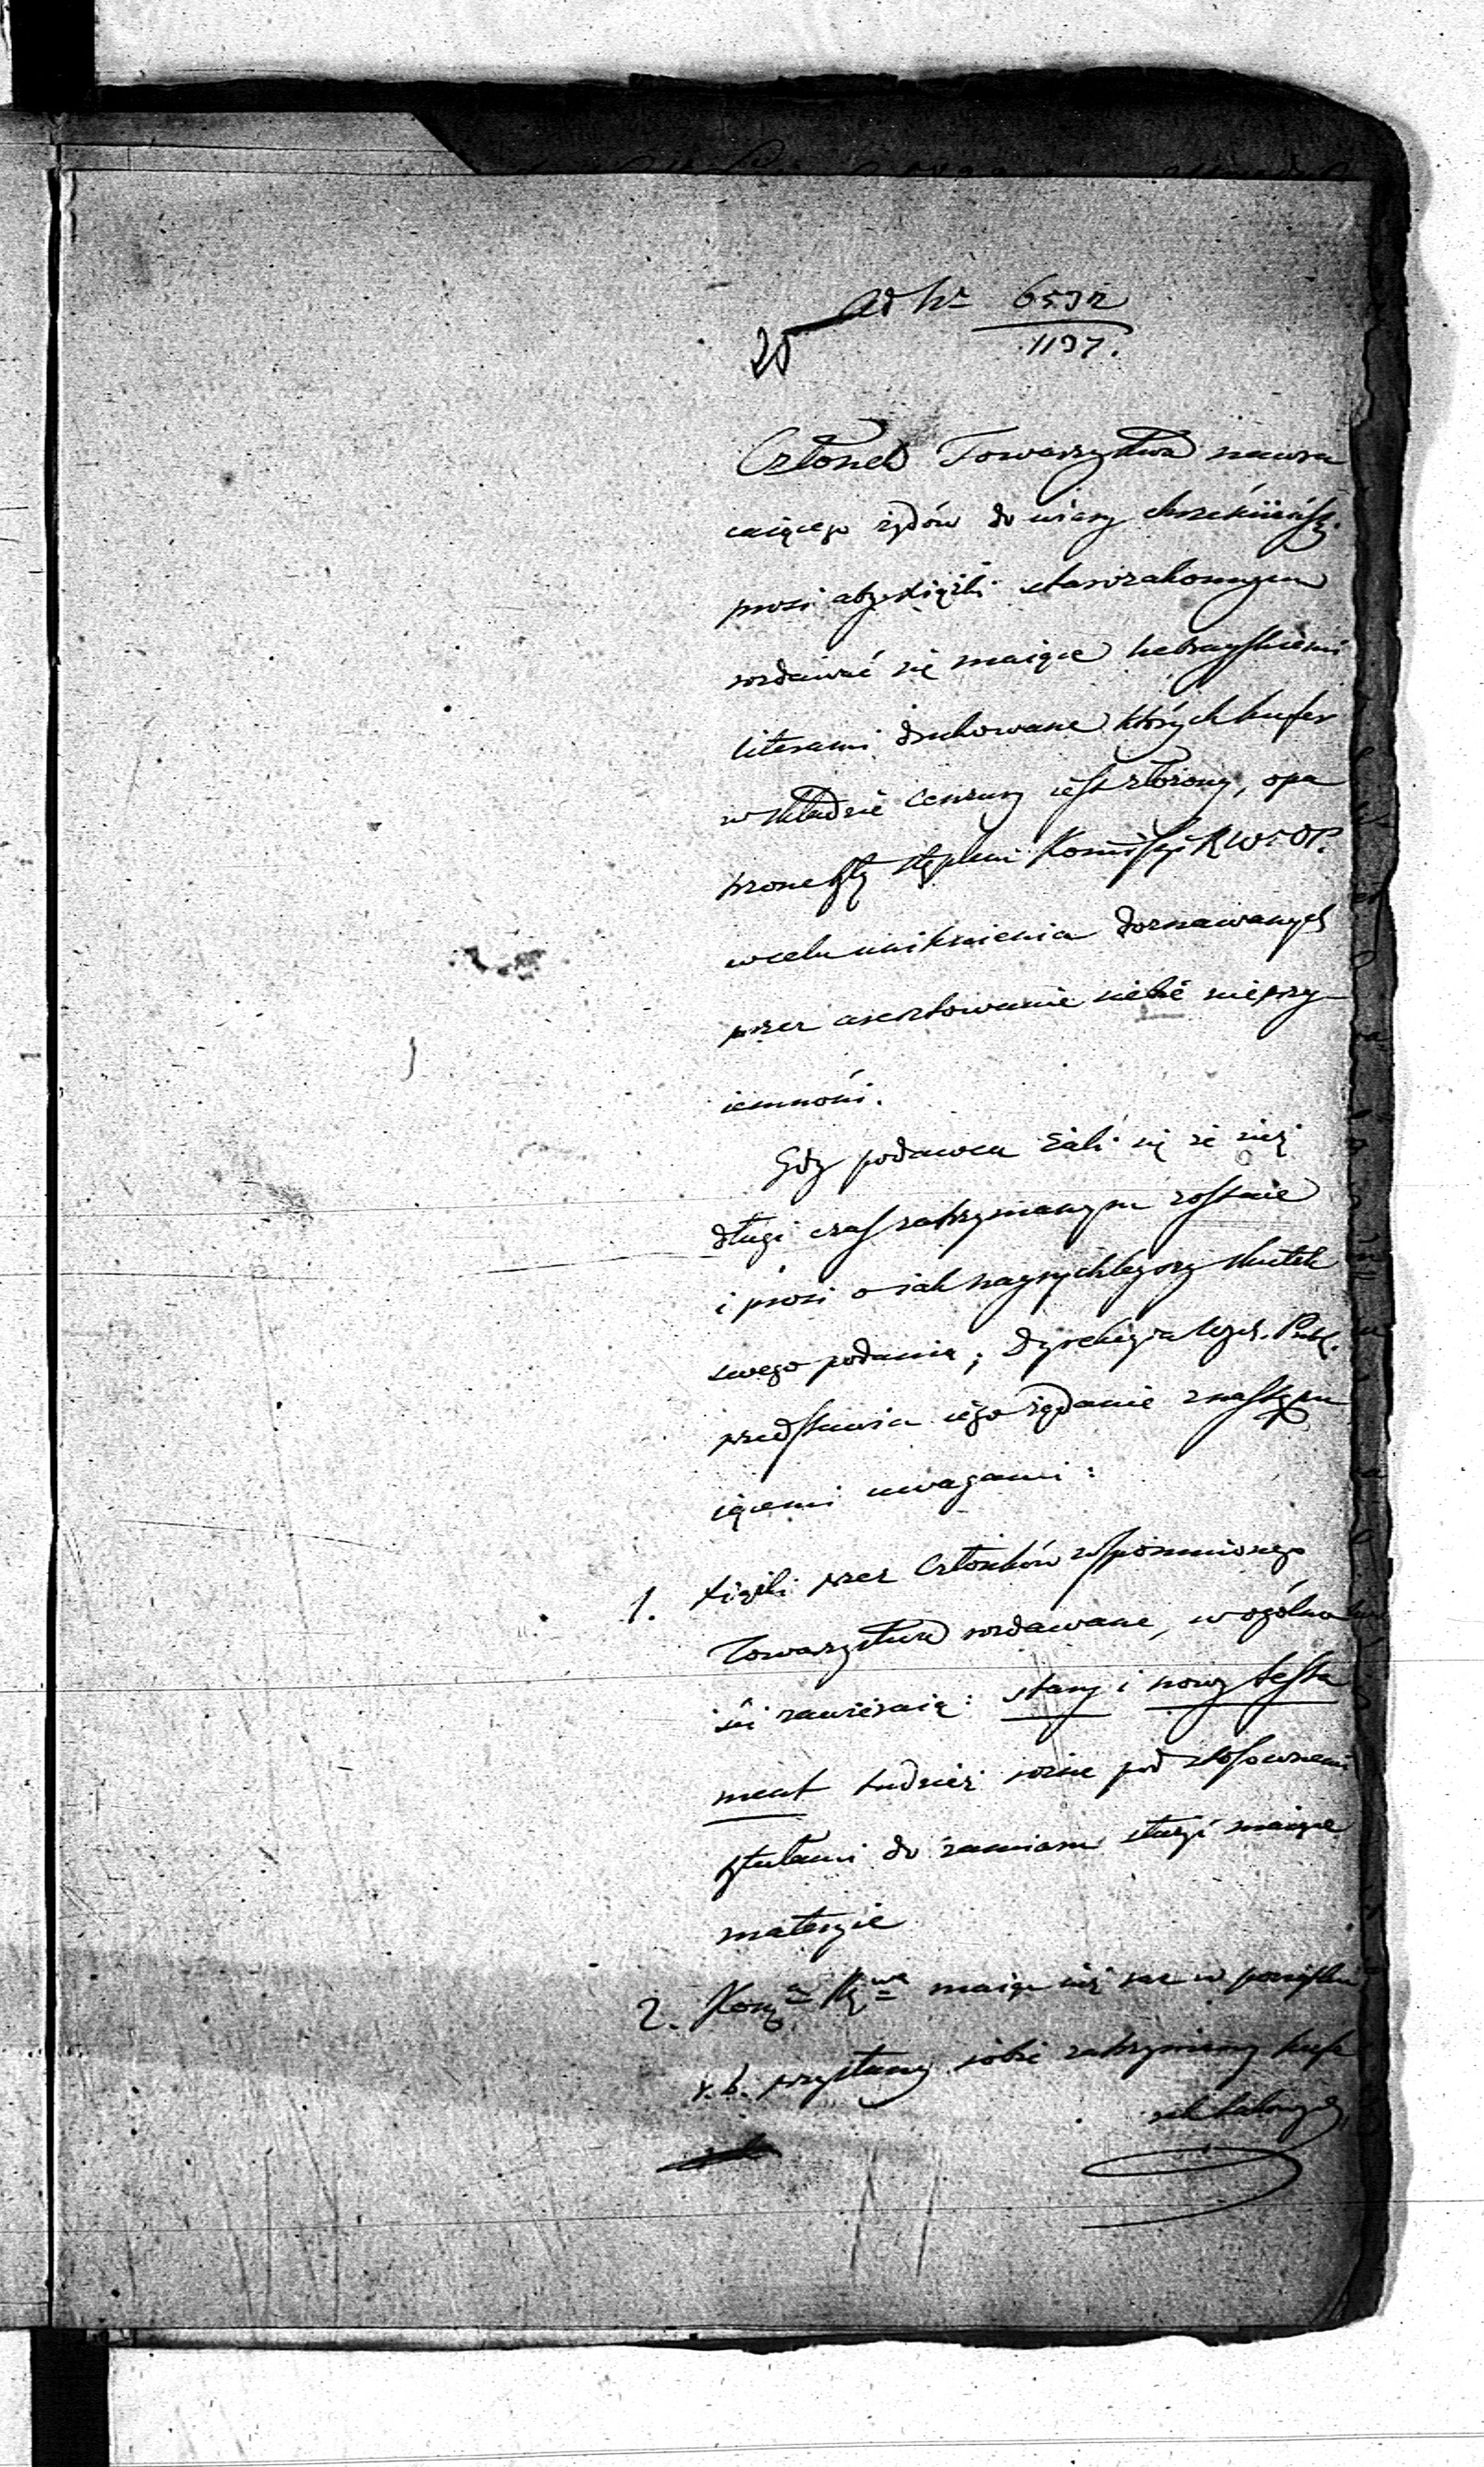 ad Nr 6532
25 1137.
Członek Towarzystwa nawra
caiącego żydów do wiary chrześciiańsk.
prosi aby xiążki starozakonnym
rozdawać się maiące hebrayskiemi
literami drukowane których kufer
w składzie cenzury iest złożony, opa
trzone były stęplem Kommissyi RW i OP.
w celu uniknienia doznawanych
przez aresztowanie siebie nieprzy-
iemności.
Gdy podawca żali się że zbyt
długi czas zatrzymanym zostaie
i prosi o iak nayrychleyszy skutek
swego podania; Dyrekcyia Wych. Publ.
przedstawia iego żądanie z następu
iącemi uwagami:
1. Xiążki przez Członków wspomnionego
Towarzystwa rozdawane, w ogólno
ści zawieraią: stary i nowy testa
ment tudzież różne pod stosownemi
tytułami do zamiaru służyć maiące
materyie
2. maiąc iuż raz w
r. b. przysłany sobie zatrzymany kufer